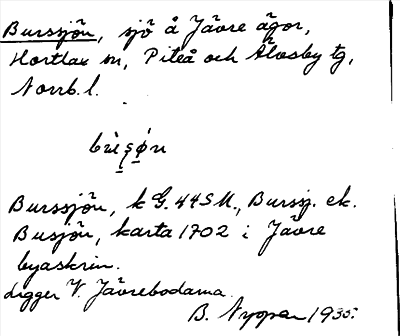 Burssjön, sjö å Jävre ägor,
Hortlax sn, Piteå och Älvsby tg,
Norrb. l.
bùsǿn
Burssjön, k G. 44 SU., Burssj. ek.
Busjön, karta 1702 i Jävre
byaskrin.
Ligger V. Jävrebodarna.
B. Nyman 1935.